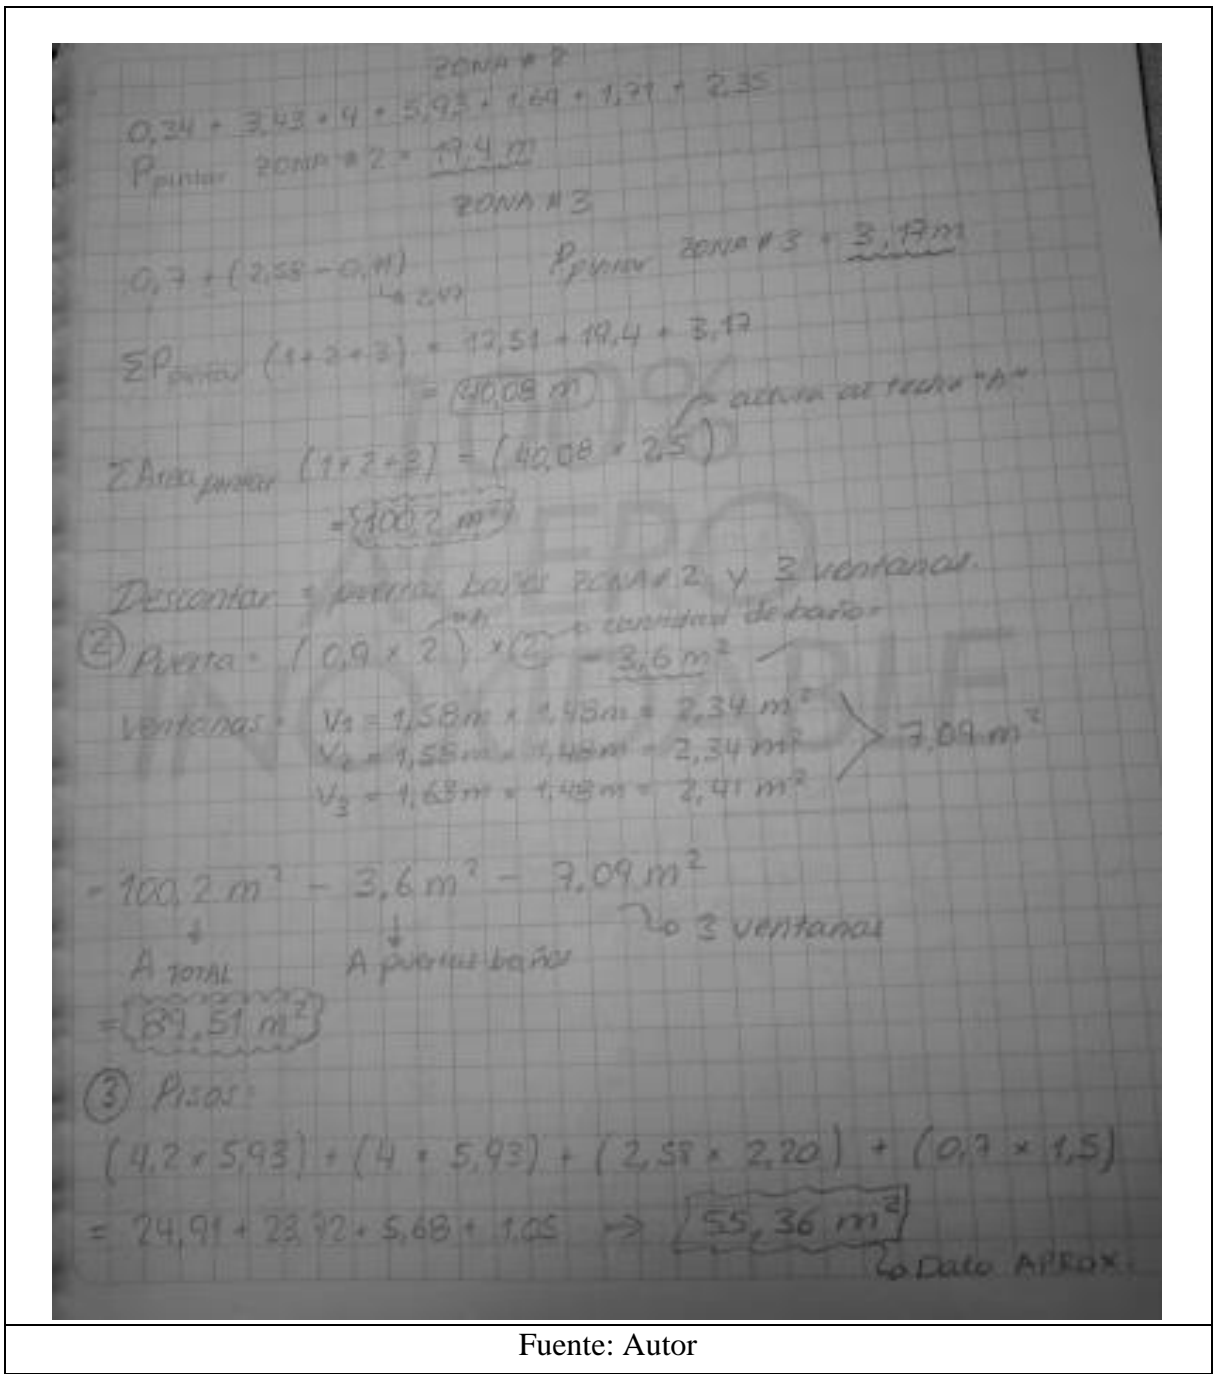 ZONA # 2
0,34 + 3,43 + 4 + 5,93 + 1,64 + 1,71 + 2,35
Ppintar ZONA # 2 = 19,4 m
ZONA # 3
0,7 + (2,58 - 0,11) Ppintar ZONA # 3 = 3,17m
↳ 2,47
ΣPpintar (1+2+3) = 17,51 + 19,4 + 3,17
= 40,08 m altura al techo "h"
ΣArea pintar (1+2+3) = (40,08 * 2,5)
= 100,2 m²
100%
ACERO
INOXIDABLE
Descontar = puertas baños ZONA # 2 y 3 ventanas.
② Puerta = (0,9 x 2) x (2) → cantidad de baños
= 3,6 m²
ventanas = V1 = 1,58m x 1,48m = 2,34 m²
V2 = 1,58m x 1,48m = 2,34 m² 7,09 m²
V3 = 1,63m x 1,48m = 2,41 m²
= 100,2 m² - 3,6 m² - 7,09 m²
↳ 3 ventanas
A TOTAL A puertas baños
= 89,51 m²
③ Pisos:
(4,2 x 5,93) + (4 * 5,93) + (2,58 x 2,20) + (0,7 x 1,5)
= 24,91 + 23,72 + 5,68 + 1,05 → 55,36 m²
↳ Dato APROX.
Fuente: Autor